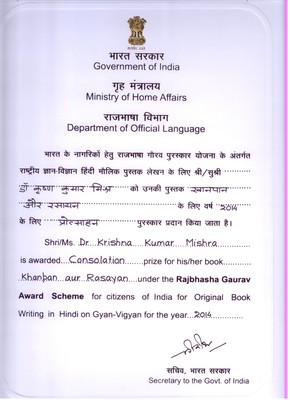 भारत सरकार
Government of India
गृह मंत्रालय
Ministry of Home Affairs
राजभाषा विभाग
Department of Official Language
भारत के नागरिकों हेतु राजभाषा गौरव पुरस्कार योजना के अंतर्गत
राष्ट्रीय ज्ञान-विज्ञान हिंदी मौलिक पुस्तक लेखन के लिए श्री/सुश्री
डॉ कृष्ण कुमार मिश्र को उनकी पुस्तक खानपान
और रसायन के लिए वर्ष 2014
के लिए प्रोत्साहन पुरस्कार प्रदान किया जाता है।
Shri/Ms. Dr. Krishna Kumar Mishra
is awarded Consolation prize for his/her book
Khanpan aur Rasayan under the Rajbhasha Gaurav
Award Scheme for citizens of India for Original Book
Writing in Hindi on Gyan-Vigyan for the year 2014
सचिव, भारत सरकार
Secretary to the Govt. of India